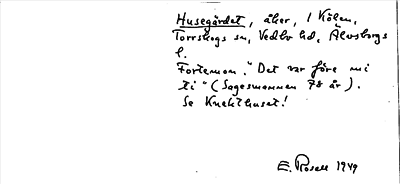 Husegärdet, åker, i Kölen,
Torrskogs sn, Vedbo hd, Älvsborgs
l.
Fortenom. "Det var före mi
ti" (Sagesmannen 78 år).
Se Knekthuset!
E. Rosell 1949